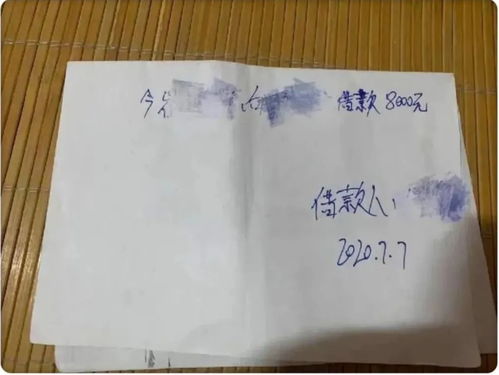 今 向 借款8000元
借款人:
2020.7.7